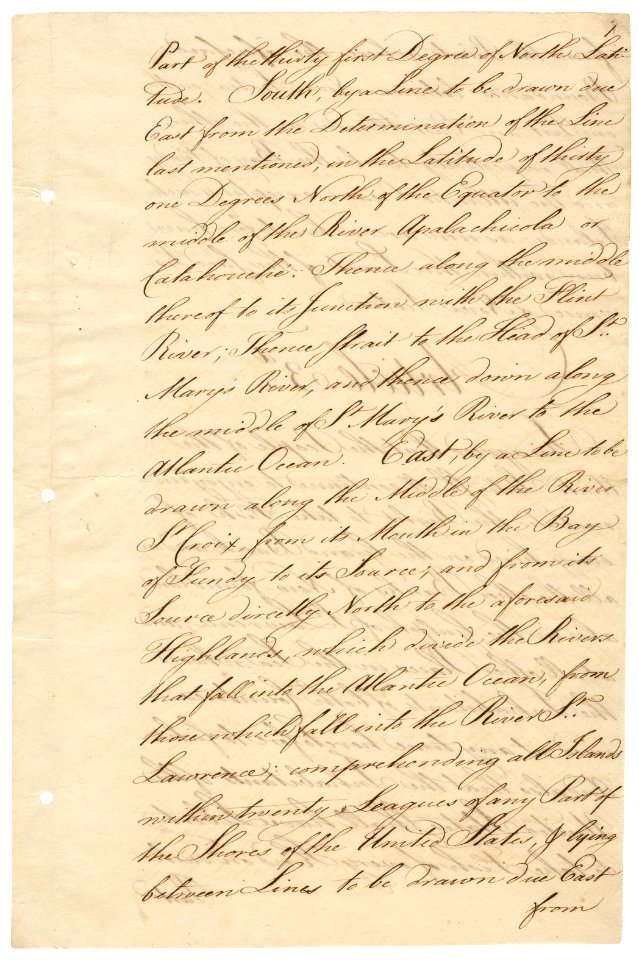 Part of the thirty first Degree of North Lati-
tude. South, by a Line to be drawn due
East from the Determination of the Line
last mentioned, in the Latitude of thirty
one Degrees North of the Equator to the
middle of the River Apalachicola or
Catahouche: Thence along the middle
thereof to its Junction with the Flint
River; Thence strait to the Head of St.
Mary's River, and thence down along
the middle of St. Mary's River to the
Atlantic Ocean. East, by a Line to be
drawn along the Middle of the River
St. Croix, from its Mouth in the Bay
of Fundy to its Source; and from its
Source directly North to the aforesaid
Highlands, which divide the Rivers
that fall into the Atlantic Ocean, from
those which fall into the River St.
Lawrence; comprehending all Islands
within twenty Leagues of any Part of
the Shores of the United States, & lying
between Lines to be drawn due East
from